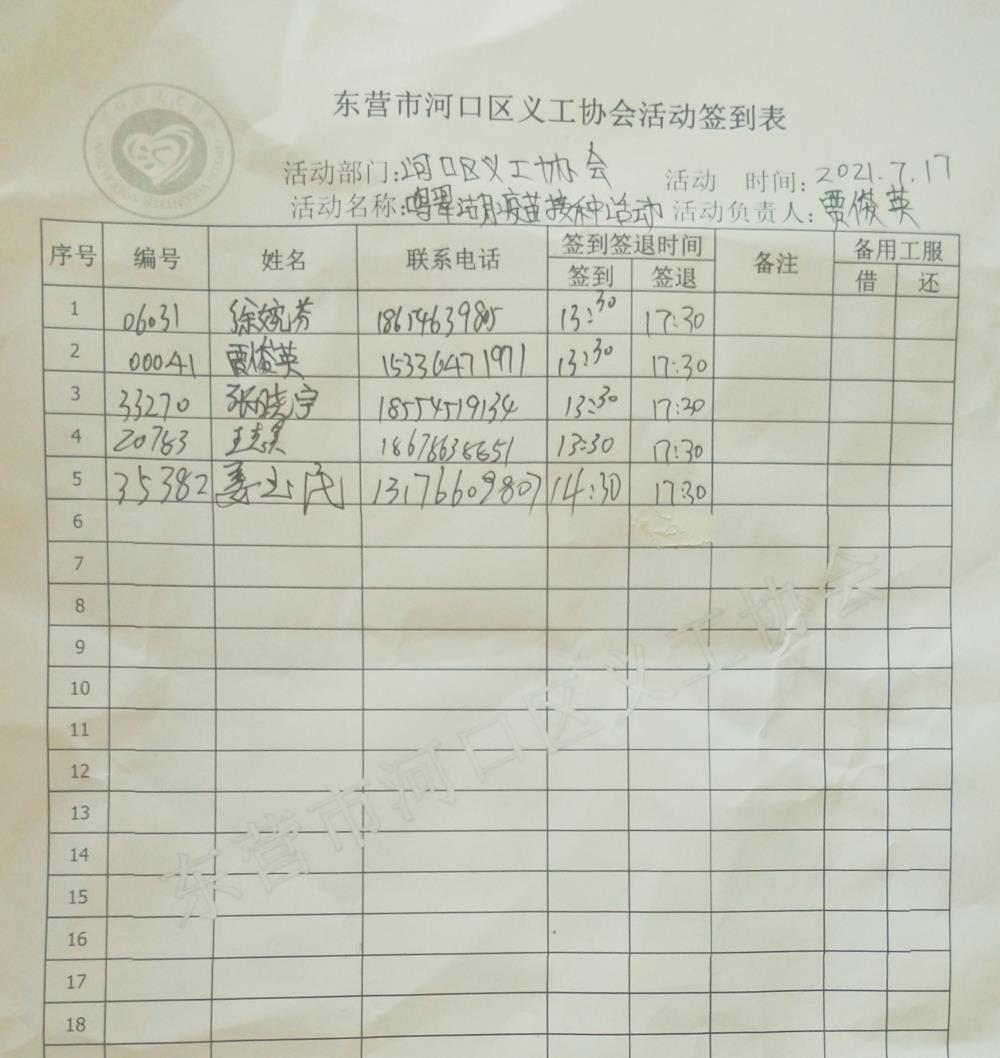 东营市河口区义工协会活动签到表
活动部门:河口区义工协会 活动 时间:2021.7.17
活动名称:鸣翠湖疫苗接种活动 活动负责人:贾俊英
序号 编号 姓名 联系电话 签到签退时间 备注 备用工服
签到 签退 借 还
1 06031 徐婉芬 18654639805 13:30 17:30
2 00041 贾俊英 15336471971 13:30 17:30
3 33270 张晓宇 18554519134 13:30 17:30
4 20763 13:30 17:30
5 35382 姜玉民 13176609807 14:30 17:30
6
7
8
9
10
11
12
13
14
15
16
17
18
东营市河口区义工协会